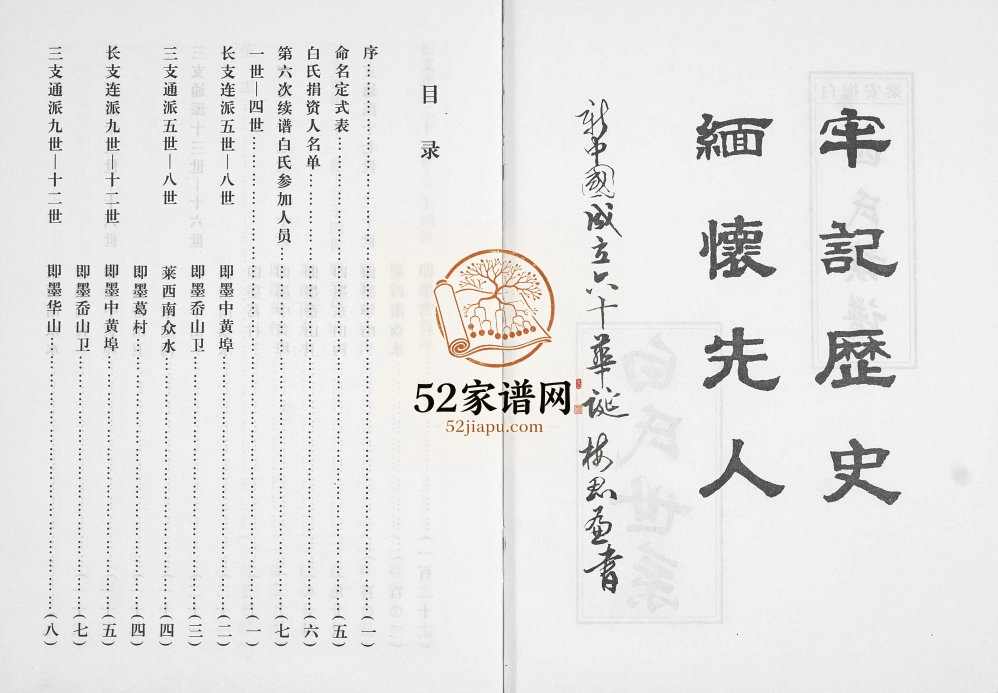 牢記歷史
緬懷先人
新中國成立六十華誕
目录
序……(一)
命名定式表……(五)
白氏捐资人名单……(六)
第六次续谱白氏参加人员……(七)
一世—四世……(一)
长支连派五世—八世 即墨中黄埠……(二)
即墨岙山卫……(三)
三支通派五世—八世 莱西南众水……(四)
即墨葛村……(四)
长支连派九世—十二世 即墨中黄埠……(五)
即墨岙山卫……(七)
三支通派九世—十二世 即墨华山……(八)
52家谱网
52jiapu.com